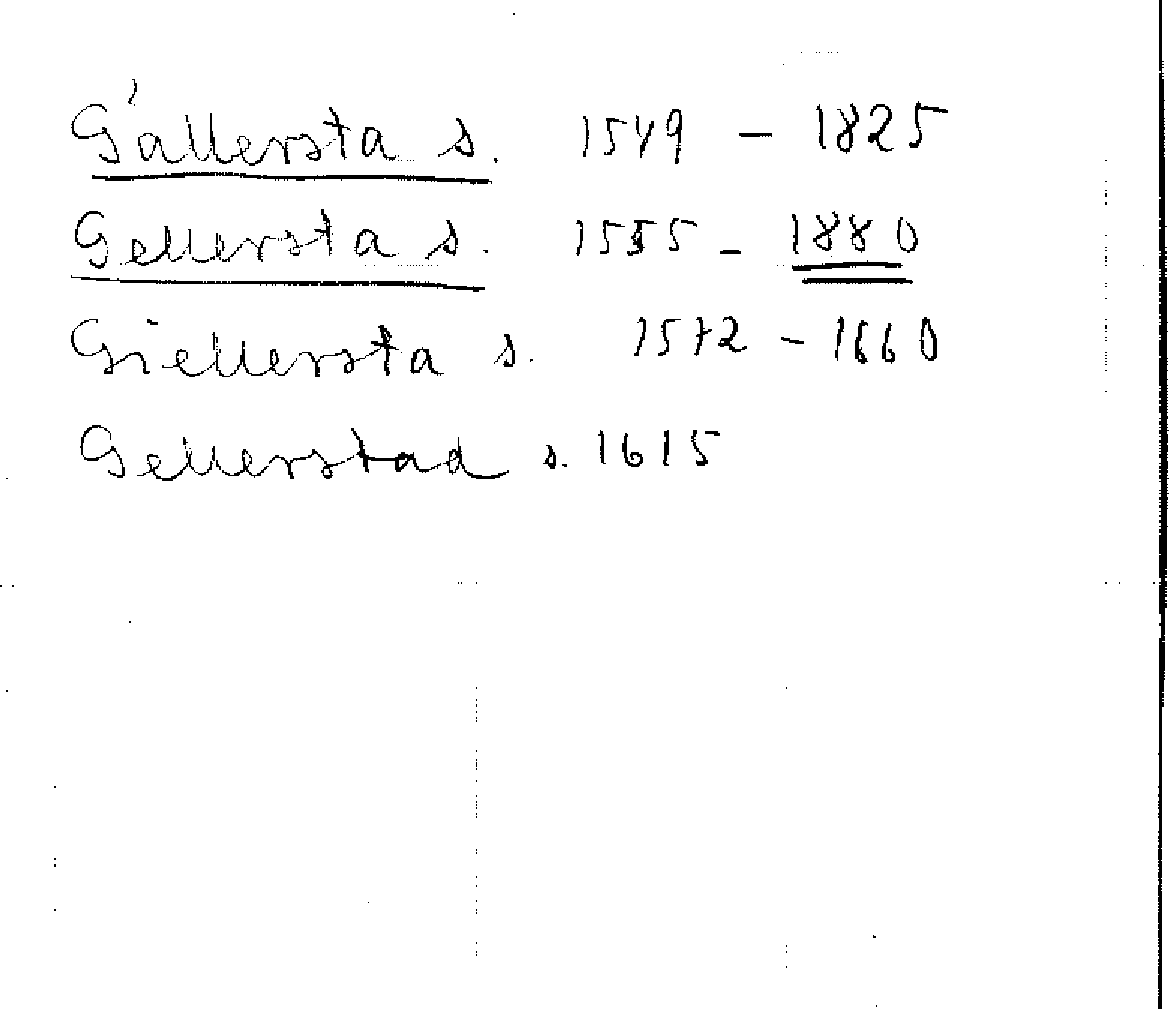 Gällersta s. 1549 - 1825
Gellersta s. 1555 - 1880
Giellersta s. 1572 - 1660
Gellerstad s. 1615